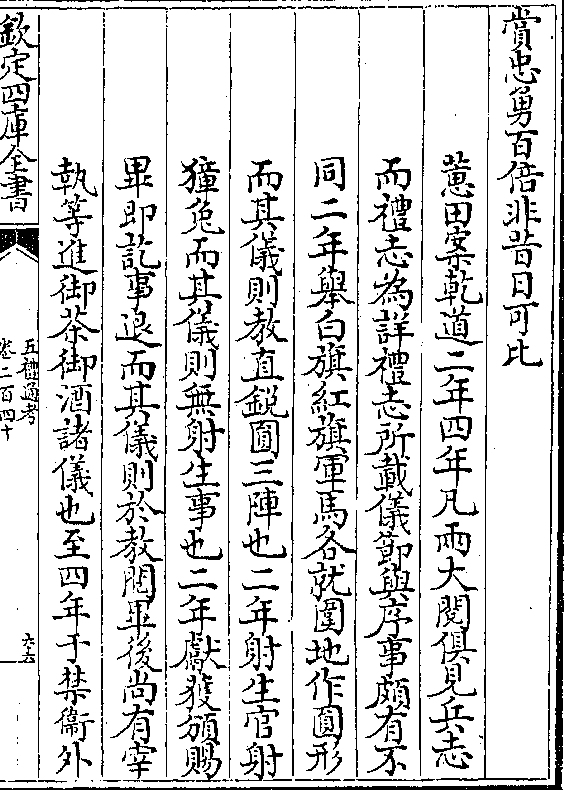 賞忠勇百倍非昔日可比
蕙田案乾道二年四年凡兩大閱俱見兵志
而禮志為詳禮志所載儀節與序事頗有不
同二年舉白旗紅旗軍馬各就圍地作圓形
而其儀則教直銳圓三陣也二年射生官射
獐兔而其儀則無射生事也二年獻獲頒賜
畢即訖事退而其儀則於教閱畢後尚有宰
執等進御茶御酒諸儀也至四年于禁衞外
欽定四庫全書
五禮通考
卷二百四十
六六